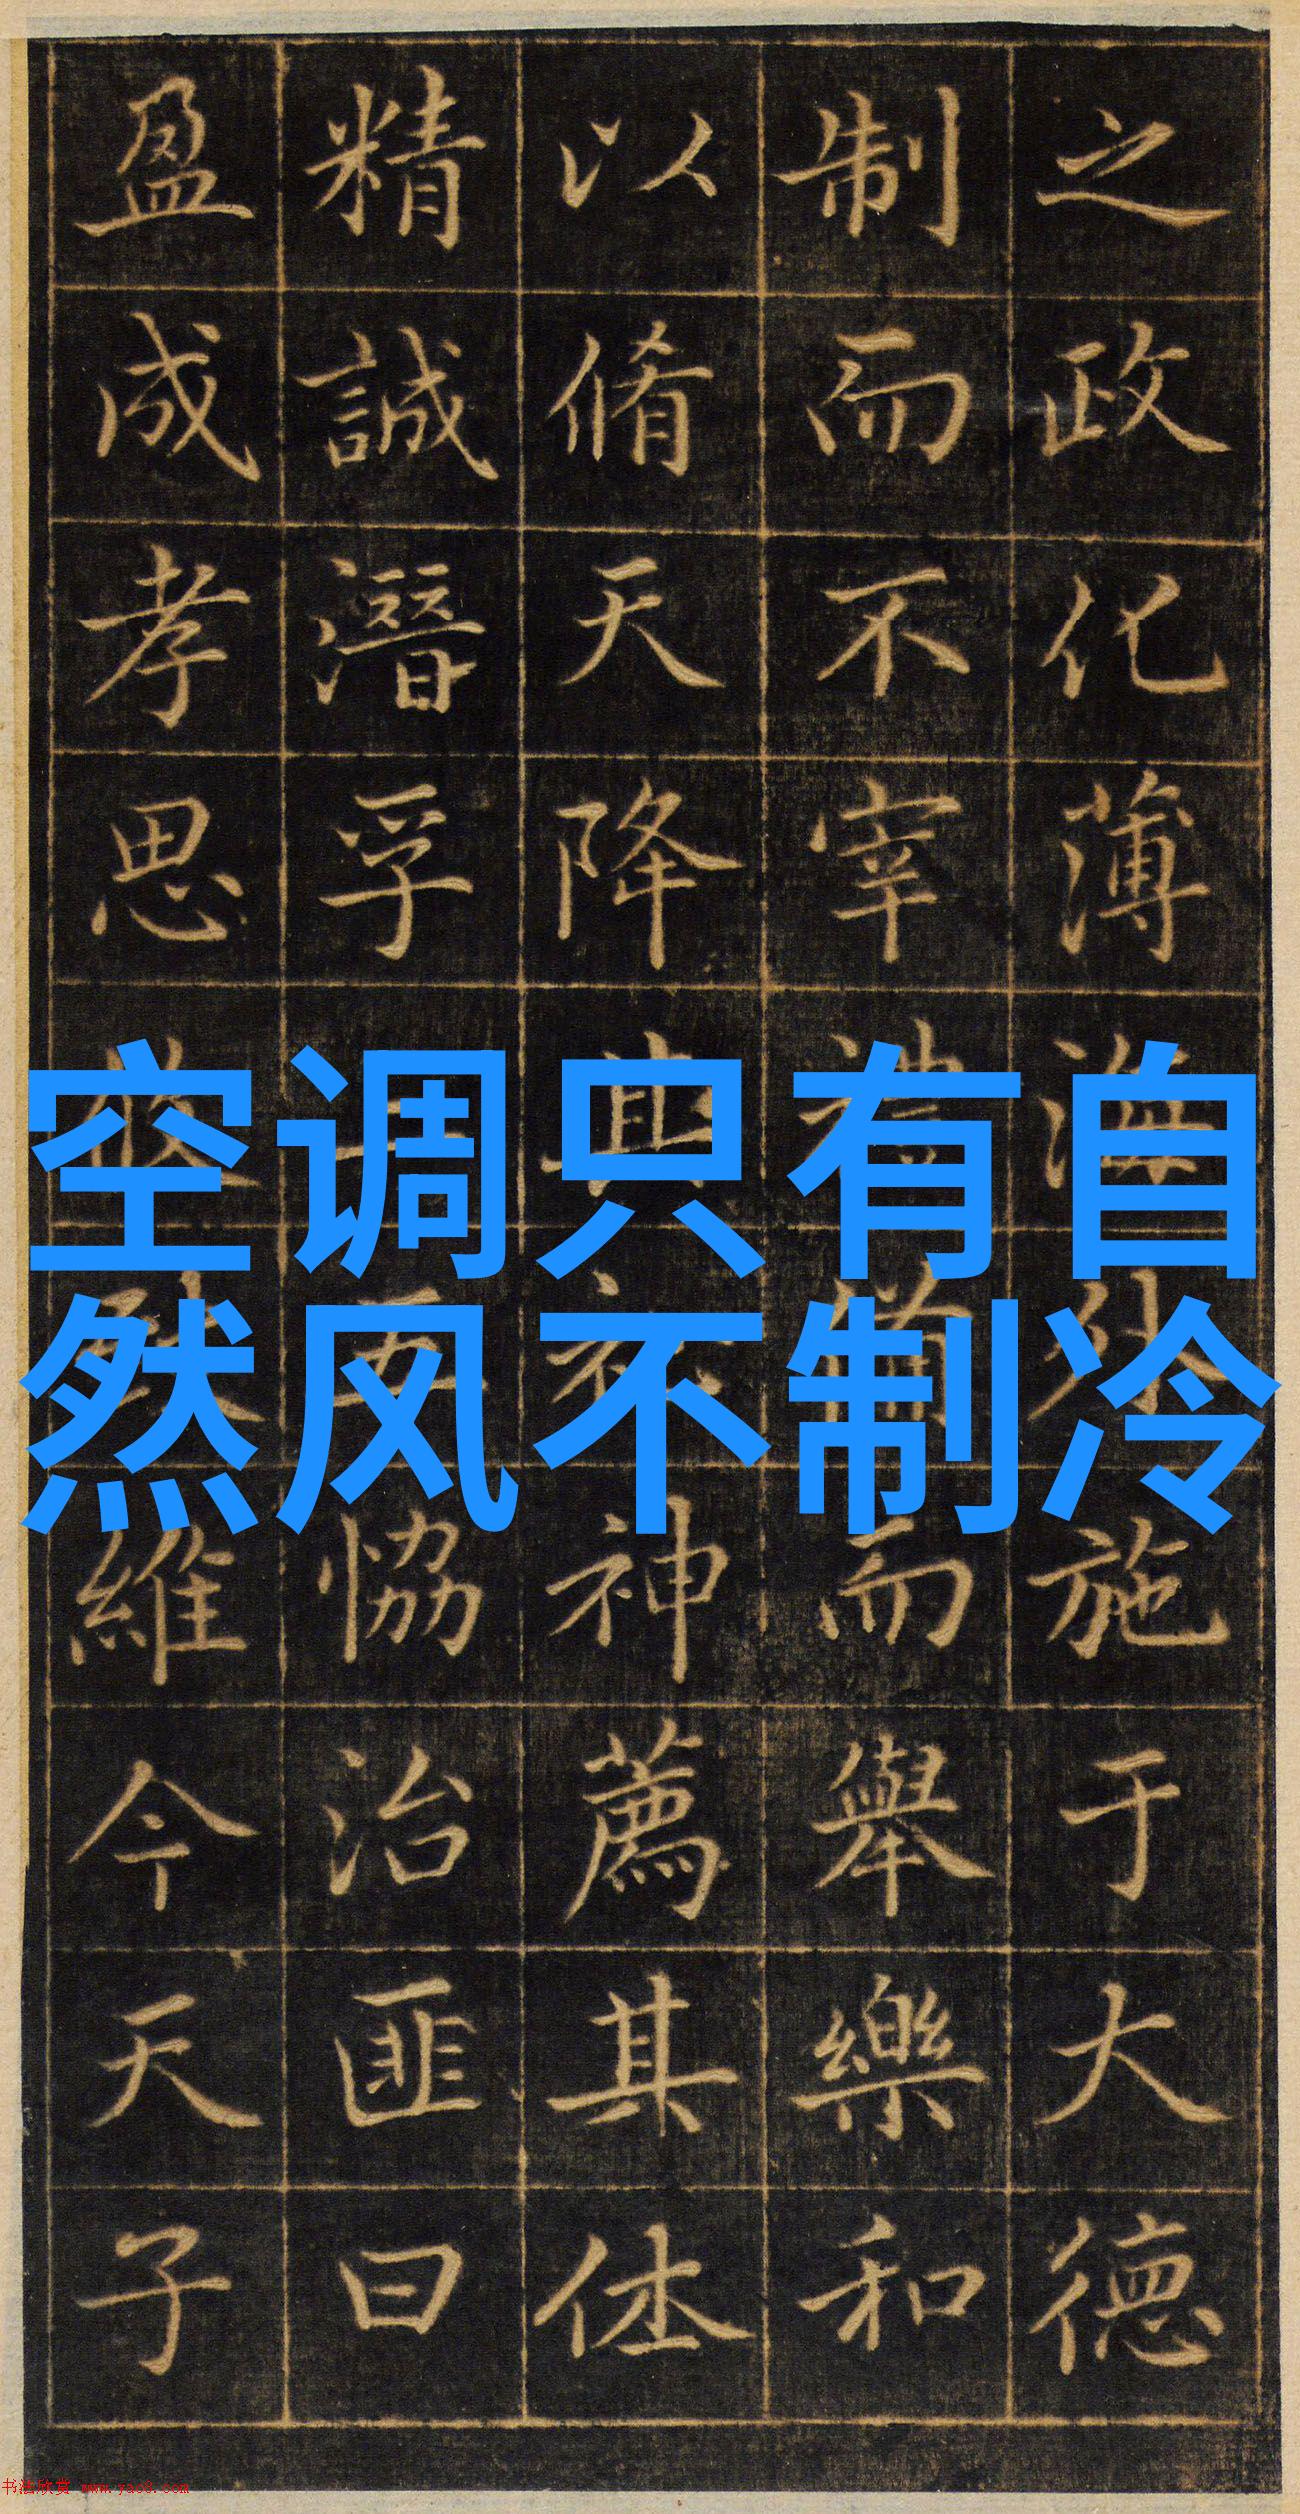 之政化薄海外施于大德
制而不宰禮備而舉樂和
以脩天降其神薦其休
精誠潛孚三五恊治匪曰
盈成孝思維今天子
空调只有自
然风不制冷
书法欣赏 www.yac8.com